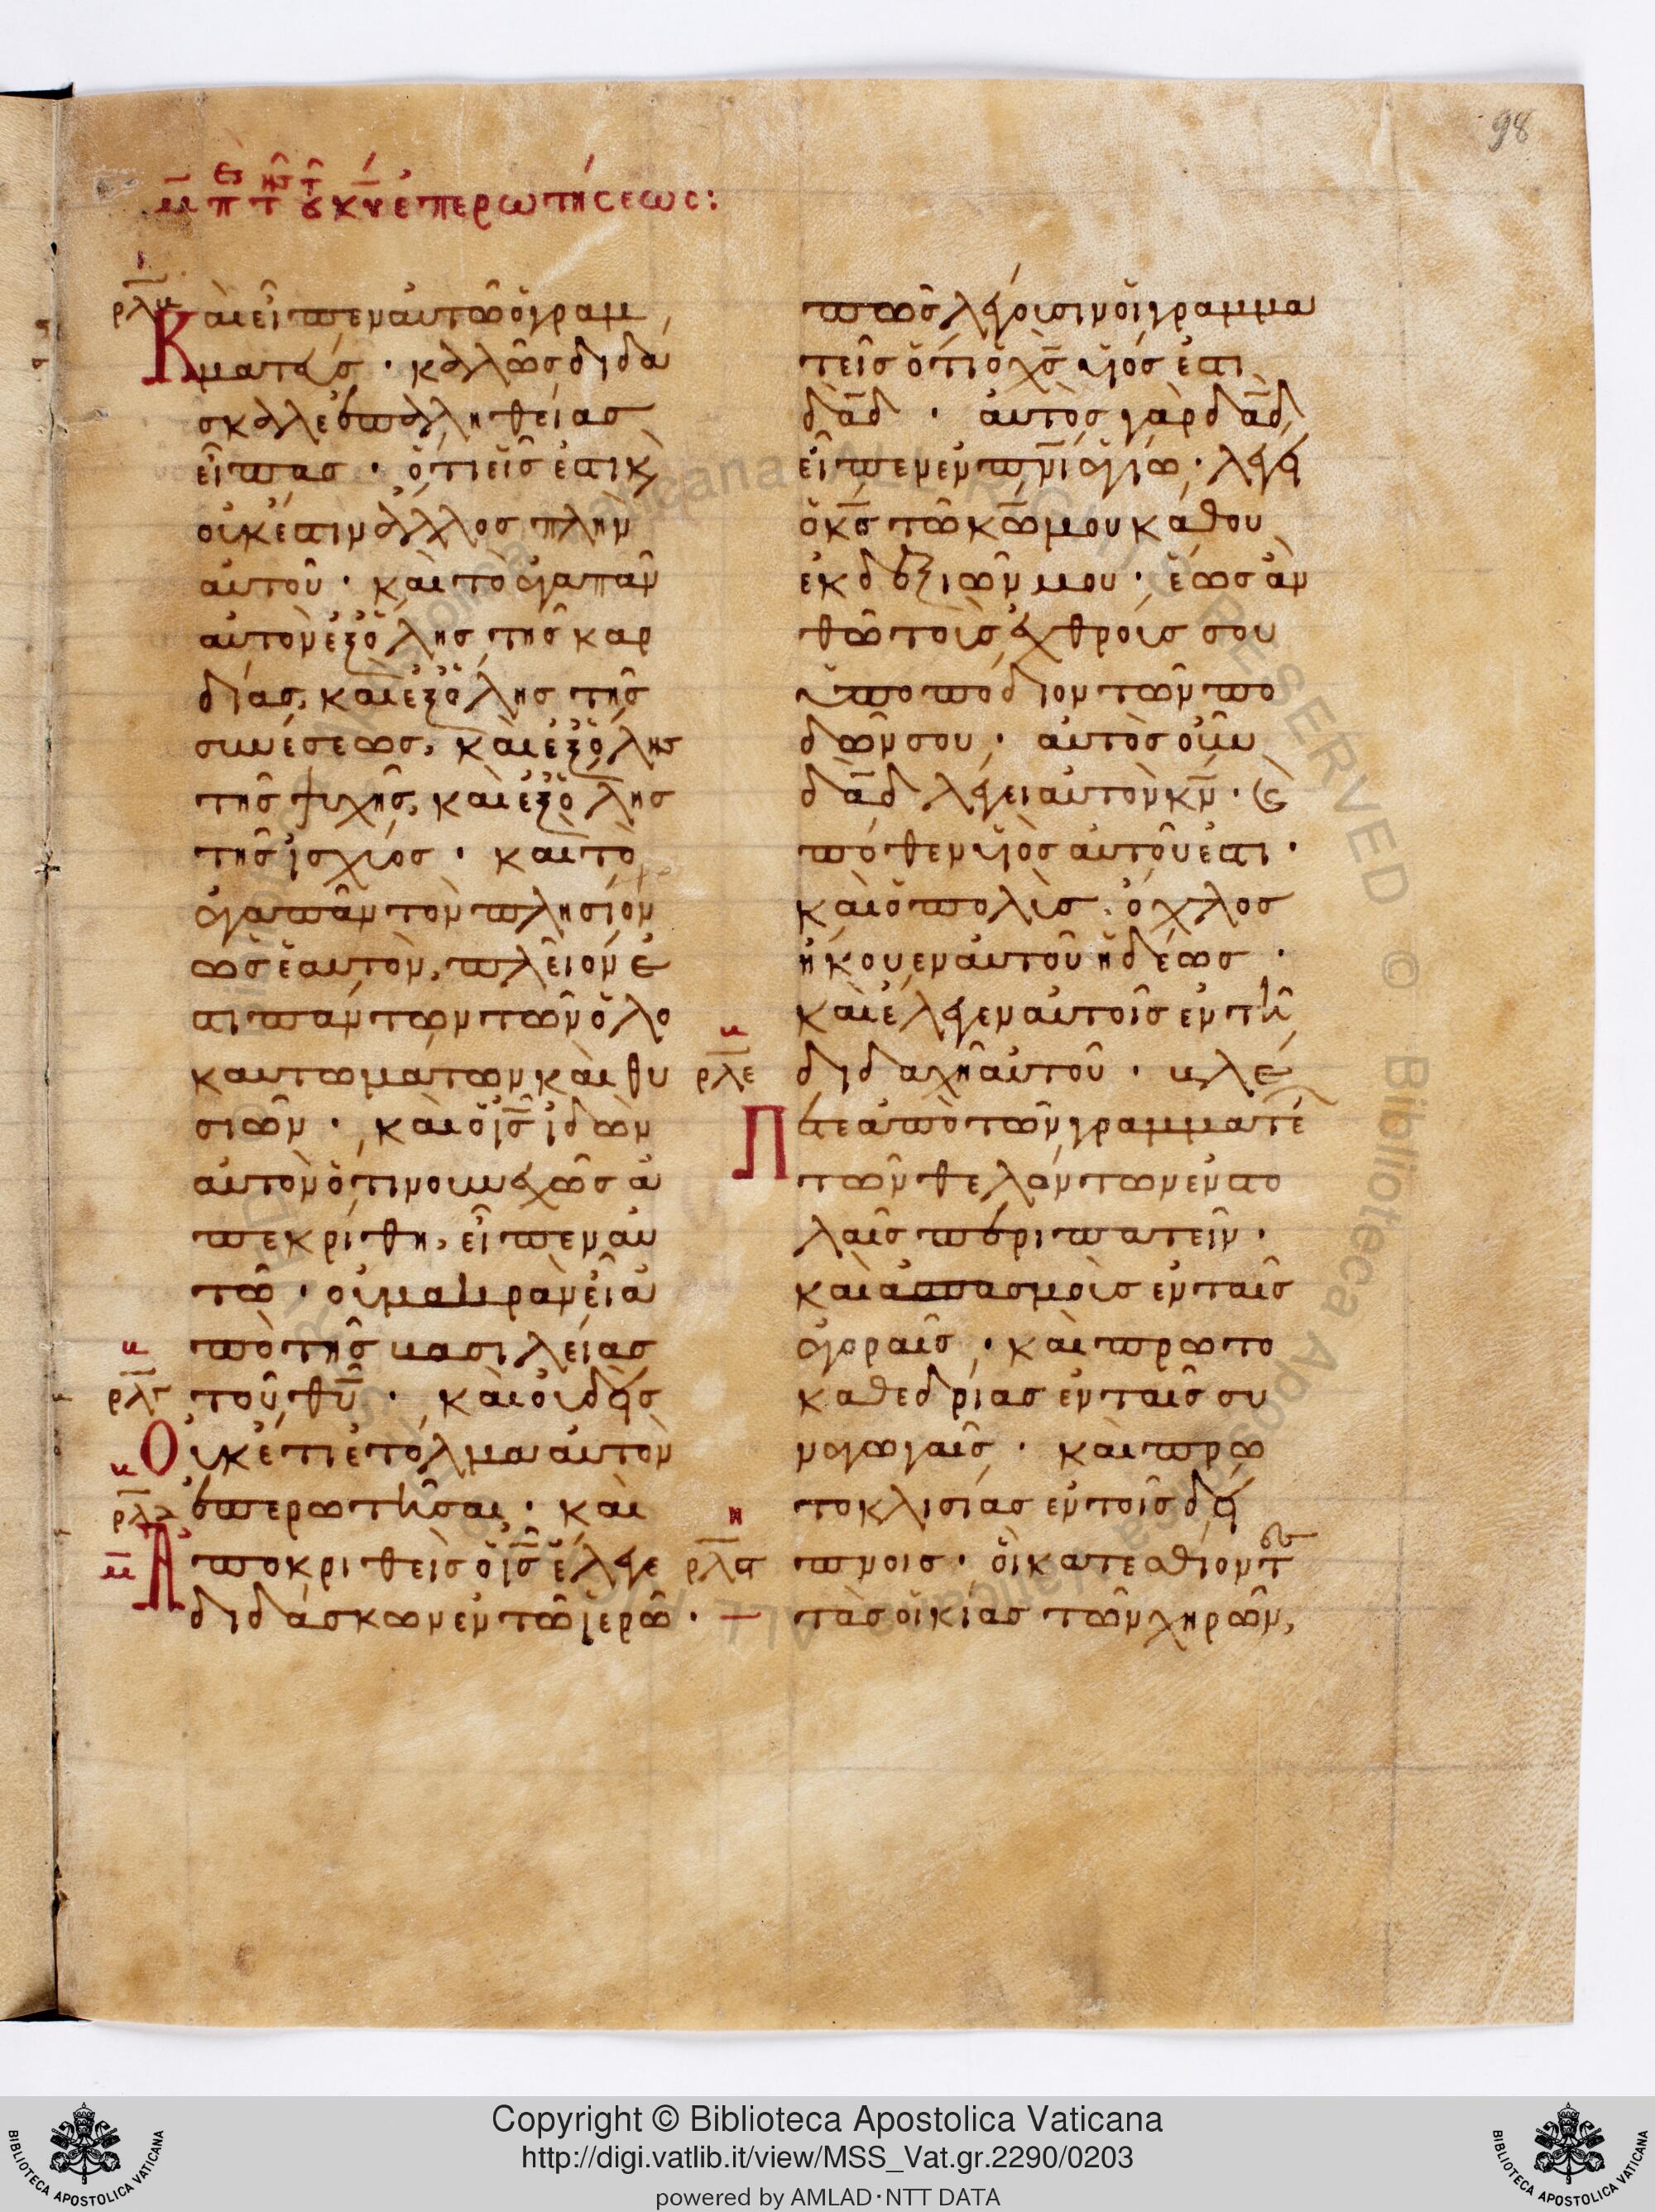 98
μ̅ π τ τ κῡ ἐπερωτήσεως:
ρλβ
Καὶ εἶπεν αὐτῶ ὁ γραμ
ματεύς · καλῶς διδά
σκαλε ἐπ ἀληθείας
εἶπας · ὅτι εἷς ἐστι κ̀
οὐκ ἔστιν ἄλλος πλὴν
αὐτοῦ · καὶ τὸ ἀγαπᾶν
αὐτὸν ἐξ ὅλης τῆς καρ
δίας, καὶ ἐξ ὅλης τῆς
συνέσεως, καὶ ἐξ ὅλης
τῆς ψυχῆς, καὶ ἐξ ὅλης
τῆς ἰσχύος · καὶ τὸ
ἀγαπᾶν τὸν πλησίον
ὡς ἑαυτὸν, πλεῖον ἐ
στι πάντων τῶν ὁλο
καυτωμάτων καὶ θυ
σιῶν · καὶ ὁ ις̅ ἰδὼν
αὐτὸν ὅτι νουνεχῶς ἀ
πεκρίθη, εἶπεν αὐ
τῶ · οὐ μακρὰν εἶ ἀ
πὸ τῆς βασιλείας
τοῦ θυ̅ · καὶ οὐδεὶς
Οὐκέτι ἐτόλμα αὐτὸν
ἐπερωτῆσαι · καὶ
Ἀποκριθεὶς ὁ ις̅ ἔλεγε
διδάσκων ἐν τῶ ἱερῶ ·
πῶς λέγουσιν οἱ γραμμα
τεῖς ὅτι ὁ χς̅ υἱός ἐστι
δα̅δ · αὐτὸς γὰρ δα̅δ
εἶπεν ἐν πνι̅ ἁγίω · λέγει
ὁ κς̅ τῶ κω̅ μου κάθου
ἐκ δεξιῶν μου · ἕως ἂν
θῶ τοὺς ἐχθρούς σου
ὑποπόδιον τῶν πο
δῶν σου · αὐτὸς οὖν
δα̅δ λέγει αὐτὸν κν̅ · κ̀
πόθεν υἱὸς αὐτοῦ ἐστι ·
καὶ ὁ πολὺς ὄχλος
ἤκουεν αὐτοῦ ἡδέως ·
καὶ ἔλεγεν αὐτοῖς ἐν τῆ
διδαχῆ αὐτοῦ · βλέ
ρλε
Πετε ἀπὸ τῶν γραμματέ
τῶν θελόντων ἐν στο
λαῖς περιπατεῖν ·
καὶ ἀσπασμοὺς ἐν ταῖς
ἀγοραῖς · καὶ πρωτο
καθεδρίας ἐν ταῖς συ
ναγωγαῖς · καὶ πρω
τοκλισίας ἐν τοῖς δεί
πνοις · οἱ κατεσθίοντ
τὰς οἰκίας τῶν χηρῶν,
Copyright © Biblioteca Apostolica Vaticana
http://digi.vatlib.it/view/MSS_Vat.gr.2290/0203
powered by AMLAD·NTT DATA
BIBLIOTECA APOSTOLICA VATICANA
BIBLIOTECA APOSTOLICA VATICANA